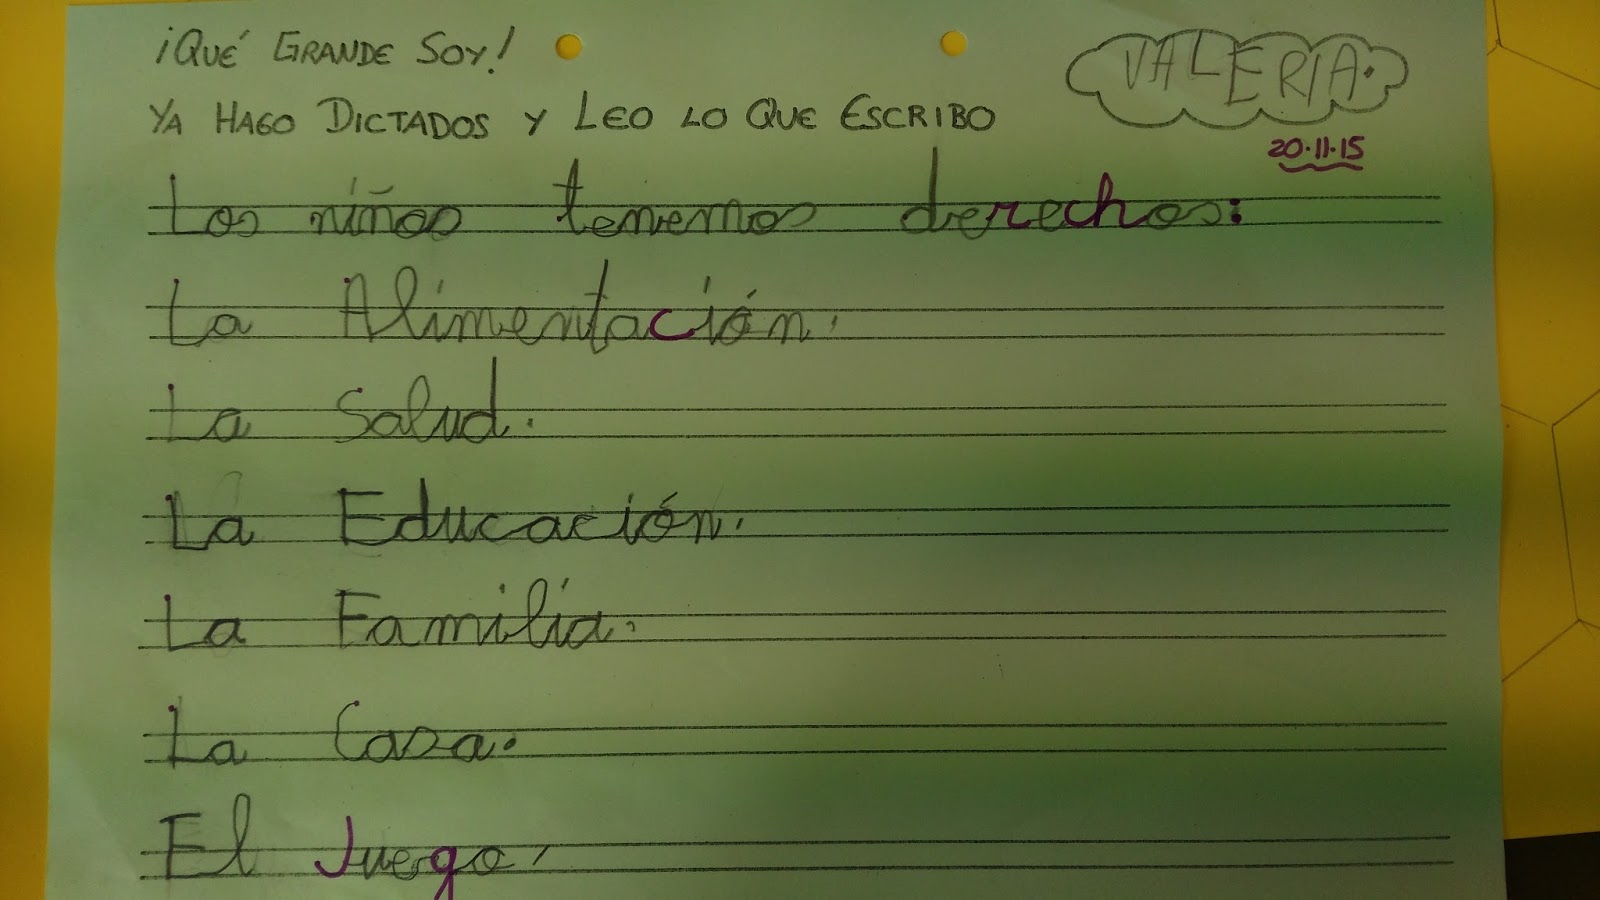 ¡QUÉ GRANDE SOY!
VALERIA.
YA HAGO DICTADOS Y LEO LO QUE ESCRIBO
20.11.15
Los niños tenemos derechos:
La Alimentación.
La Salud.
La Educación.
La Familia.
La Casa.
El Juego.